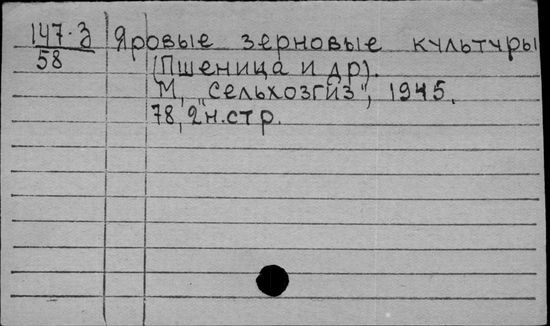 147.З Яровые зерновые культуры
58 (Пшеница и др).
М, "Сельхозгиз", 1945.
78, 2н.стр.